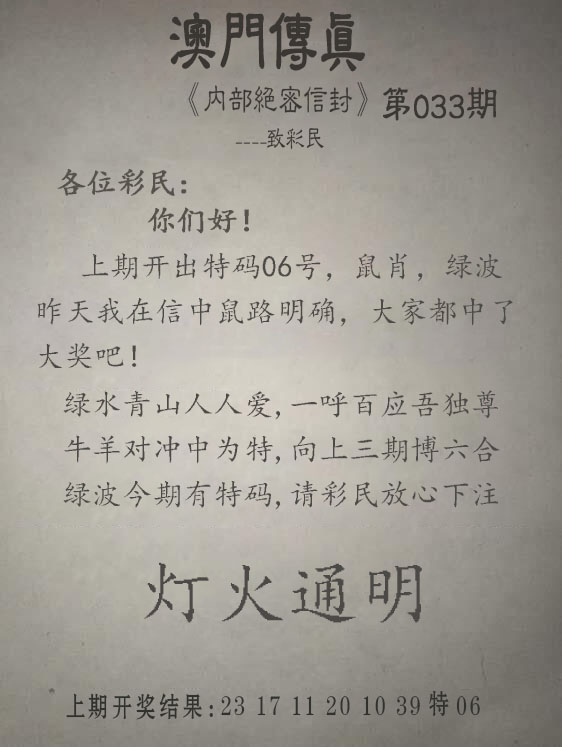 澳門傳眞
《内部絕密信封》第033期
----致彩民
各位彩民：
你们好！
上期开出特码06号，鼠肖，绿波
昨天我在信中鼠路明确，大家都中了
大奖吧！
绿水青山人人爱，一呼百应吾独尊
牛羊对冲中为特，向上三期博六合
绿波今期有特码，请彩民放心下注
灯火通明
上期开奖结果：23 17 11 20 10 39 特 06